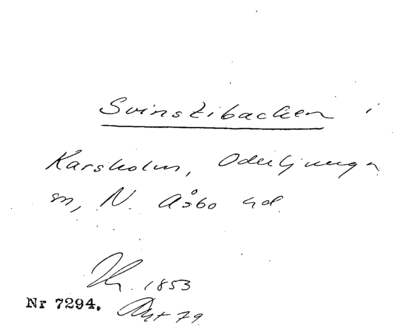 Svinstibacken i
Karsholm, Oderljunga
sn, N. Åsbo hd.
1853
Nr 7294.
79